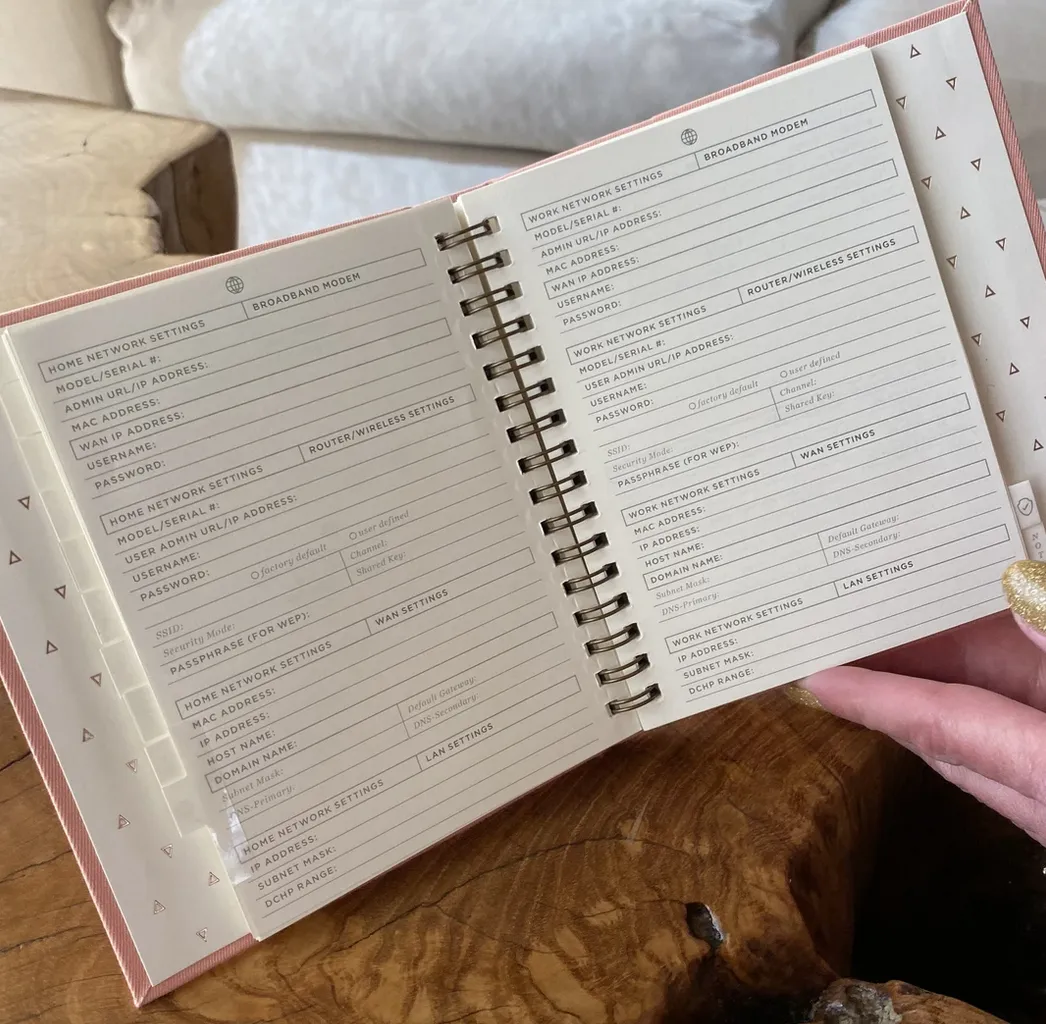 HOME NETWORK SETTINGS BROADBAND MODEM
MODEL/SERIAL #:
ADMIN URL/IP ADDRESS:
MAC ADDRESS:
WAN IP ADDRESS:
USERNAME:
PASSWORD:
HOME NETWORK SETTINGS ROUTER/WIRELESS SETTINGS
MODEL/SERIAL #:
USER ADMIN URL/IP ADDRESS:
USERNAME:
PASSWORD: factory default user defined
SSID: Channel:
Security Mode: Shared Key:
PASSPHRASE (FOR WEP):
HOME NETWORK SETTINGS WAN SETTINGS
MAC ADDRESS:
IP ADDRESS:
HOST NAME:
DOMAIN NAME:
Subnet Mask: Default Gateway:
DNS-Primary: DNS-Secondary:
HOME NETWORK SETTINGS LAN SETTINGS
IP ADDRESS:
SUBNET MASK:
DCHP RANGE:
WORK NETWORK SETTINGS BROADBAND MODEM
MODEL/SERIAL #:
ADMIN URL/IP ADDRESS:
MAC ADDRESS:
WAN IP ADDRESS:
USERNAME:
PASSWORD:
WORK NETWORK SETTINGS ROUTER/WIRELESS SETTINGS
MODEL/SERIAL #:
USER ADMIN URL/IP ADDRESS:
USERNAME:
PASSWORD: factory default user defined
SSID: Channel:
Security Mode: Shared Key:
PASSPHRASE (FOR WEP):
WORK NETWORK SETTINGS WAN SETTINGS
MAC ADDRESS:
IP ADDRESS:
HOST NAME:
DOMAIN NAME:
Subnet Mask: Default Gateway:
DNS-Primary: DNS-Secondary:
WORK NETWORK SETTINGS LAN SETTINGS
IP ADDRESS:
SUBNET MASK:
DCHP RANGE: